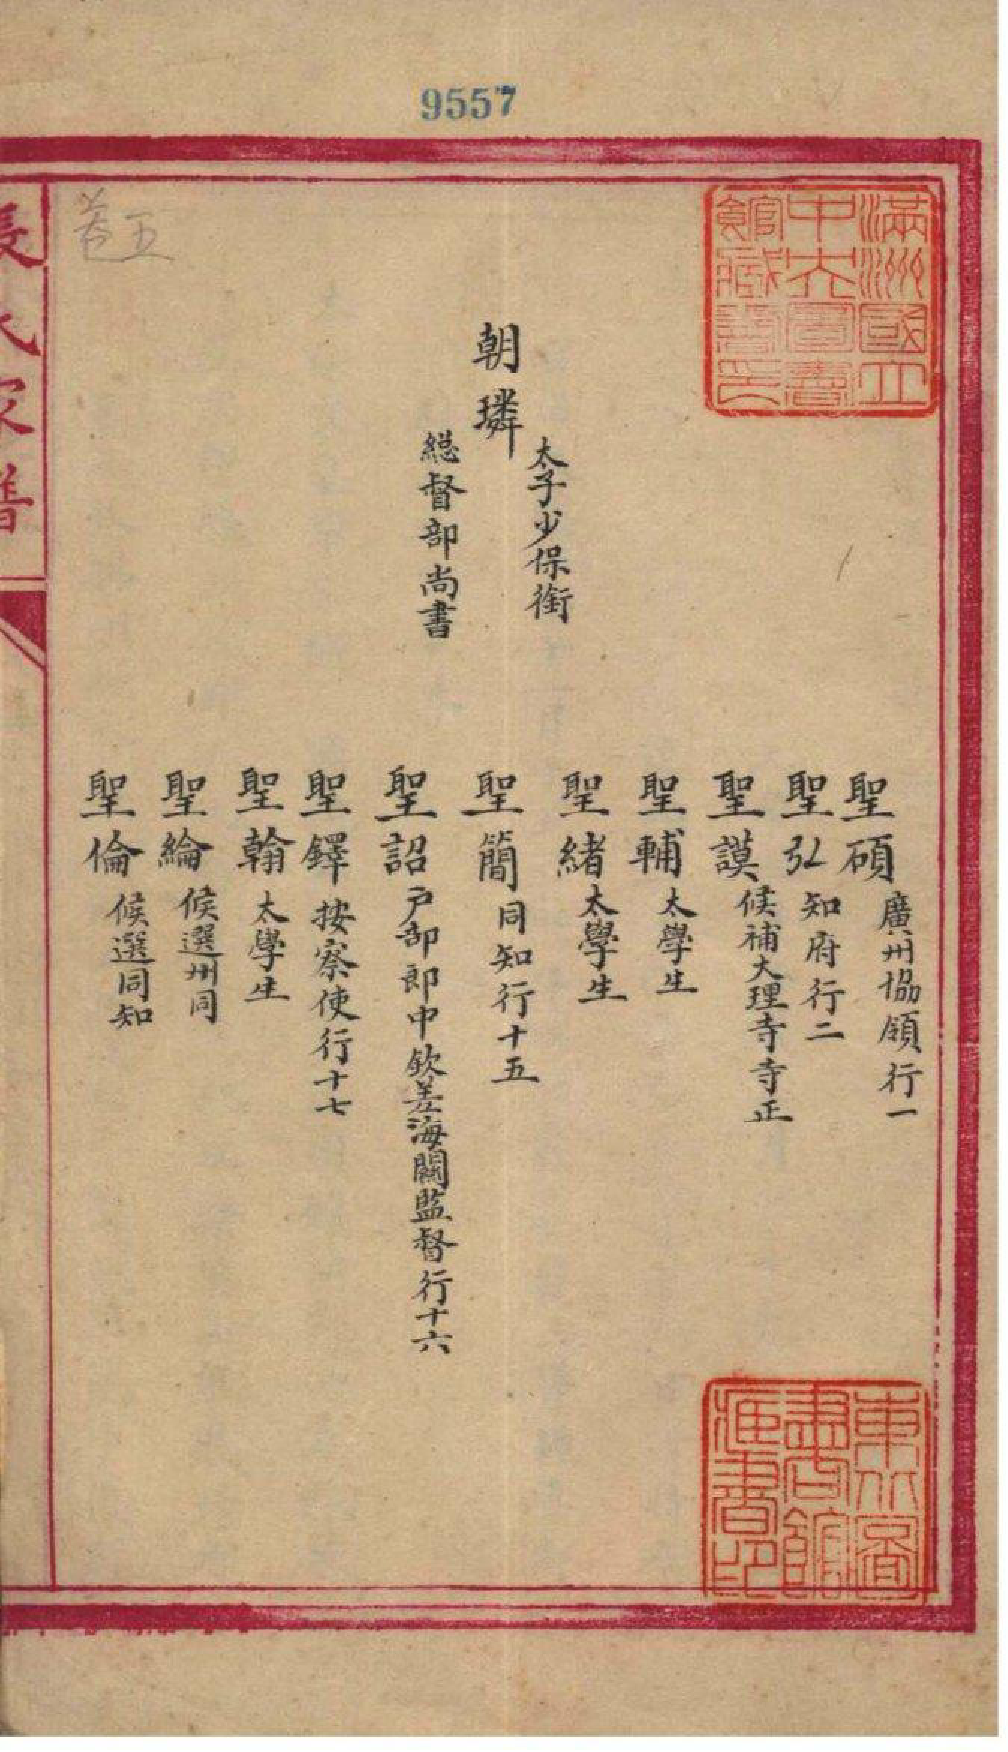 9557
滿洲國立
中央圖書
館藏書印
朝璘
太子少保銜
総督部尚書
聖碩
廣州協領行一
聖弘
知府行二
聖謨
候補大理寺寺正
聖輔
太學生
聖緒
太學生
聖簡
同知行十五
聖詔
戸部郎中欽差海關監督行十六
聖鐸
按察使行十七
聖翰
太學生
聖綸
候選州同
聖倫
候選同知
東北圖
書館
藏書印
卷五
張氏家譜